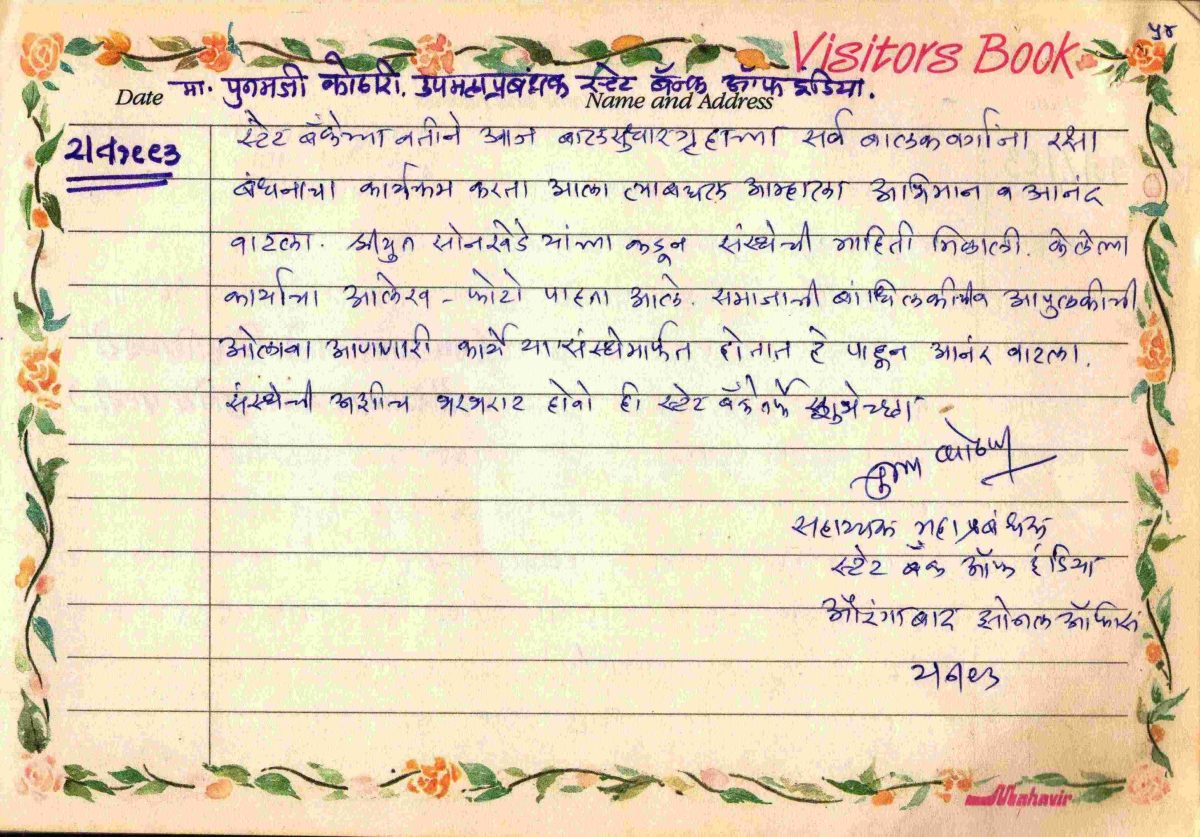 ५४
Visitors Book
मा. पुनमजी कोठारी. उपमहाप्रबंधक स्टेट बॅन्क ऑफ इंडिया.
Date Name and Address
स्टेट बँकेच्या वतीने आज बालसुधारगृहाच्या सर्व बालकवर्गांना रक्षा
बंधनाचा कार्यक्रम करता आला त्याबद्दल आम्हाला अभिमान व आनंद
वाटला. श्रीयुत सोनखेडे यांच्या कडून संस्थेची माहिती मिळाली. केलेल्या
कार्याचा आलेख - फोटो पाहता आले. समाजाची बांधिलकी आपुलकीची
ओलावा आणणारी कार्ये या संस्थेमार्फत होतात हे पाहून आनंद वाटला.
संस्थेची अशीच भरभराट होवो ही स्टेट बँकेतर्फे शुभेच्छा
सहाय्यक महाप्रबंधक
स्टेट बँक ऑफ इंडिया
औरंगाबाद झोनल ऑफिस
Mahavir